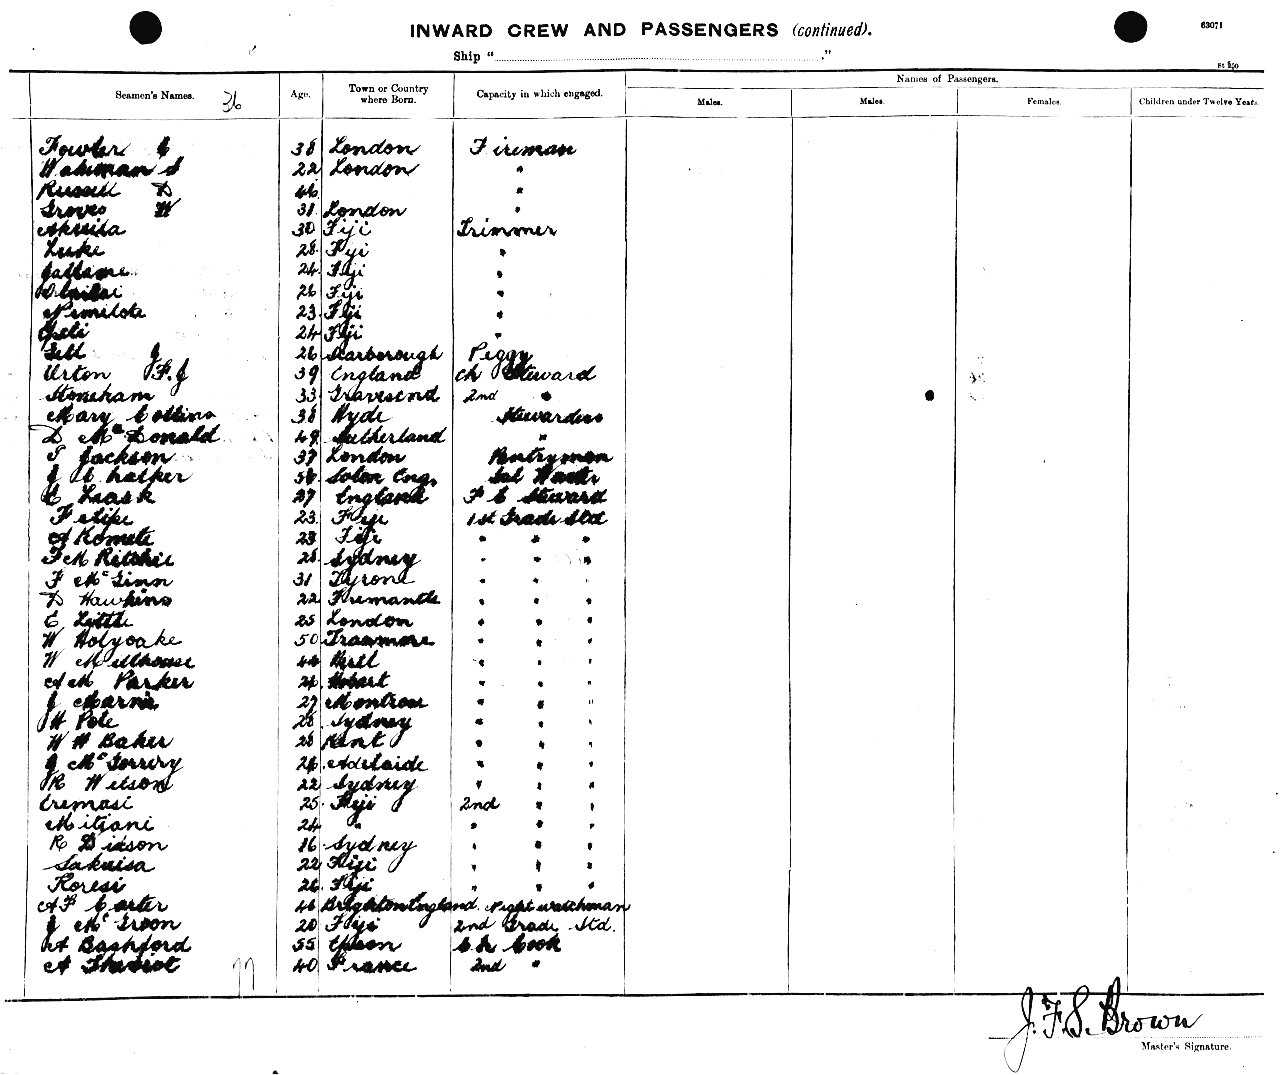 63071
INWARD CREW AND PASSENGERS (continued).
Ship "
."
Names of Passengers.
Seamen's Names. 36 Age. Town or Country where Born. Capacity in which engaged. Males. Males. Females. Children under Twelve Years.
Fowler 38 London Fireman
22 London "
Russell D 46 "
Groves W 31 London "
Akuila 30 Fiji Trimmer
Luke 28 Fiji "
24 Fiji "
26 Fiji "
Nemilote 23 Fiji "
24 Fiji "
J 26 Scarborough Peggy
Urton F.J 39 England Ch Steward
Stoneham 33 Gravesend 2nd "
Mary Collins 38 Hyde Stewardess
D McDonald 49 Sutherland "
Jackson 37 London Pantryman
J C Eng.
C Leask 27 England Steward
Felipe 23 Fiji 1st Grade Std
A Komete 23 Fiji " " "
F M Ritchie 28 Sydney " " "
F McGinn 31 Tyrone " " "
D Hawkins 22 Fremantle " " "
C Little 25 London " " "
W Holyoake 50 Tranmere " " "
W Millhouse 44 " " "
A M Parker 26 Hobart " " "
J 27 Montrose " " "
H Pole 28 Sydney " " "
W H Baker 28 Kent " " "
J McGorrery 26 Adelaide " " "
R Wilson 22 Sydney " " "
Eremasi 25 Fiji 2nd " "
Mitiani 24 " " " "
R Dixson 16 Sydney " " "
Sakuisa 22 Fiji " " "
Koresi 26 Fiji " " "
A F Carter 46 Brighton England. Night watchman
J McGroon 20 Fiji 2nd Grade Std.
A Bashford 55 Epsom Ch Cook
A 77 40 France 2nd "
J.F.S. Brown
Master's Signature.